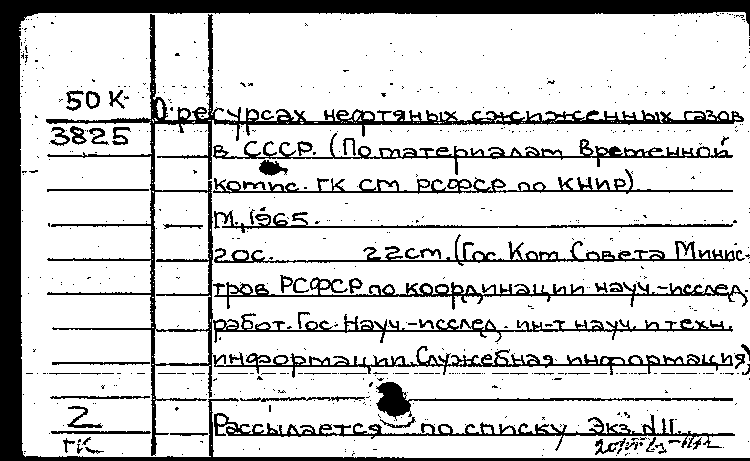 50 К
3825
О ресурсах нефтяных сжиженных газов
в СССР. (По материалам Временной
комис. ГК СМ РСФСР по КНИР)
М., 1965.
20с. 22см. (Гос. Ком. Совета Минис-
тров РСФСР по координации науч.-исслед.
работ. Гос. науч.-исслед. ин-т науч. и техн.
информации. Служебная информация)
2
ГК
Рассылается по списку Экз. N11.